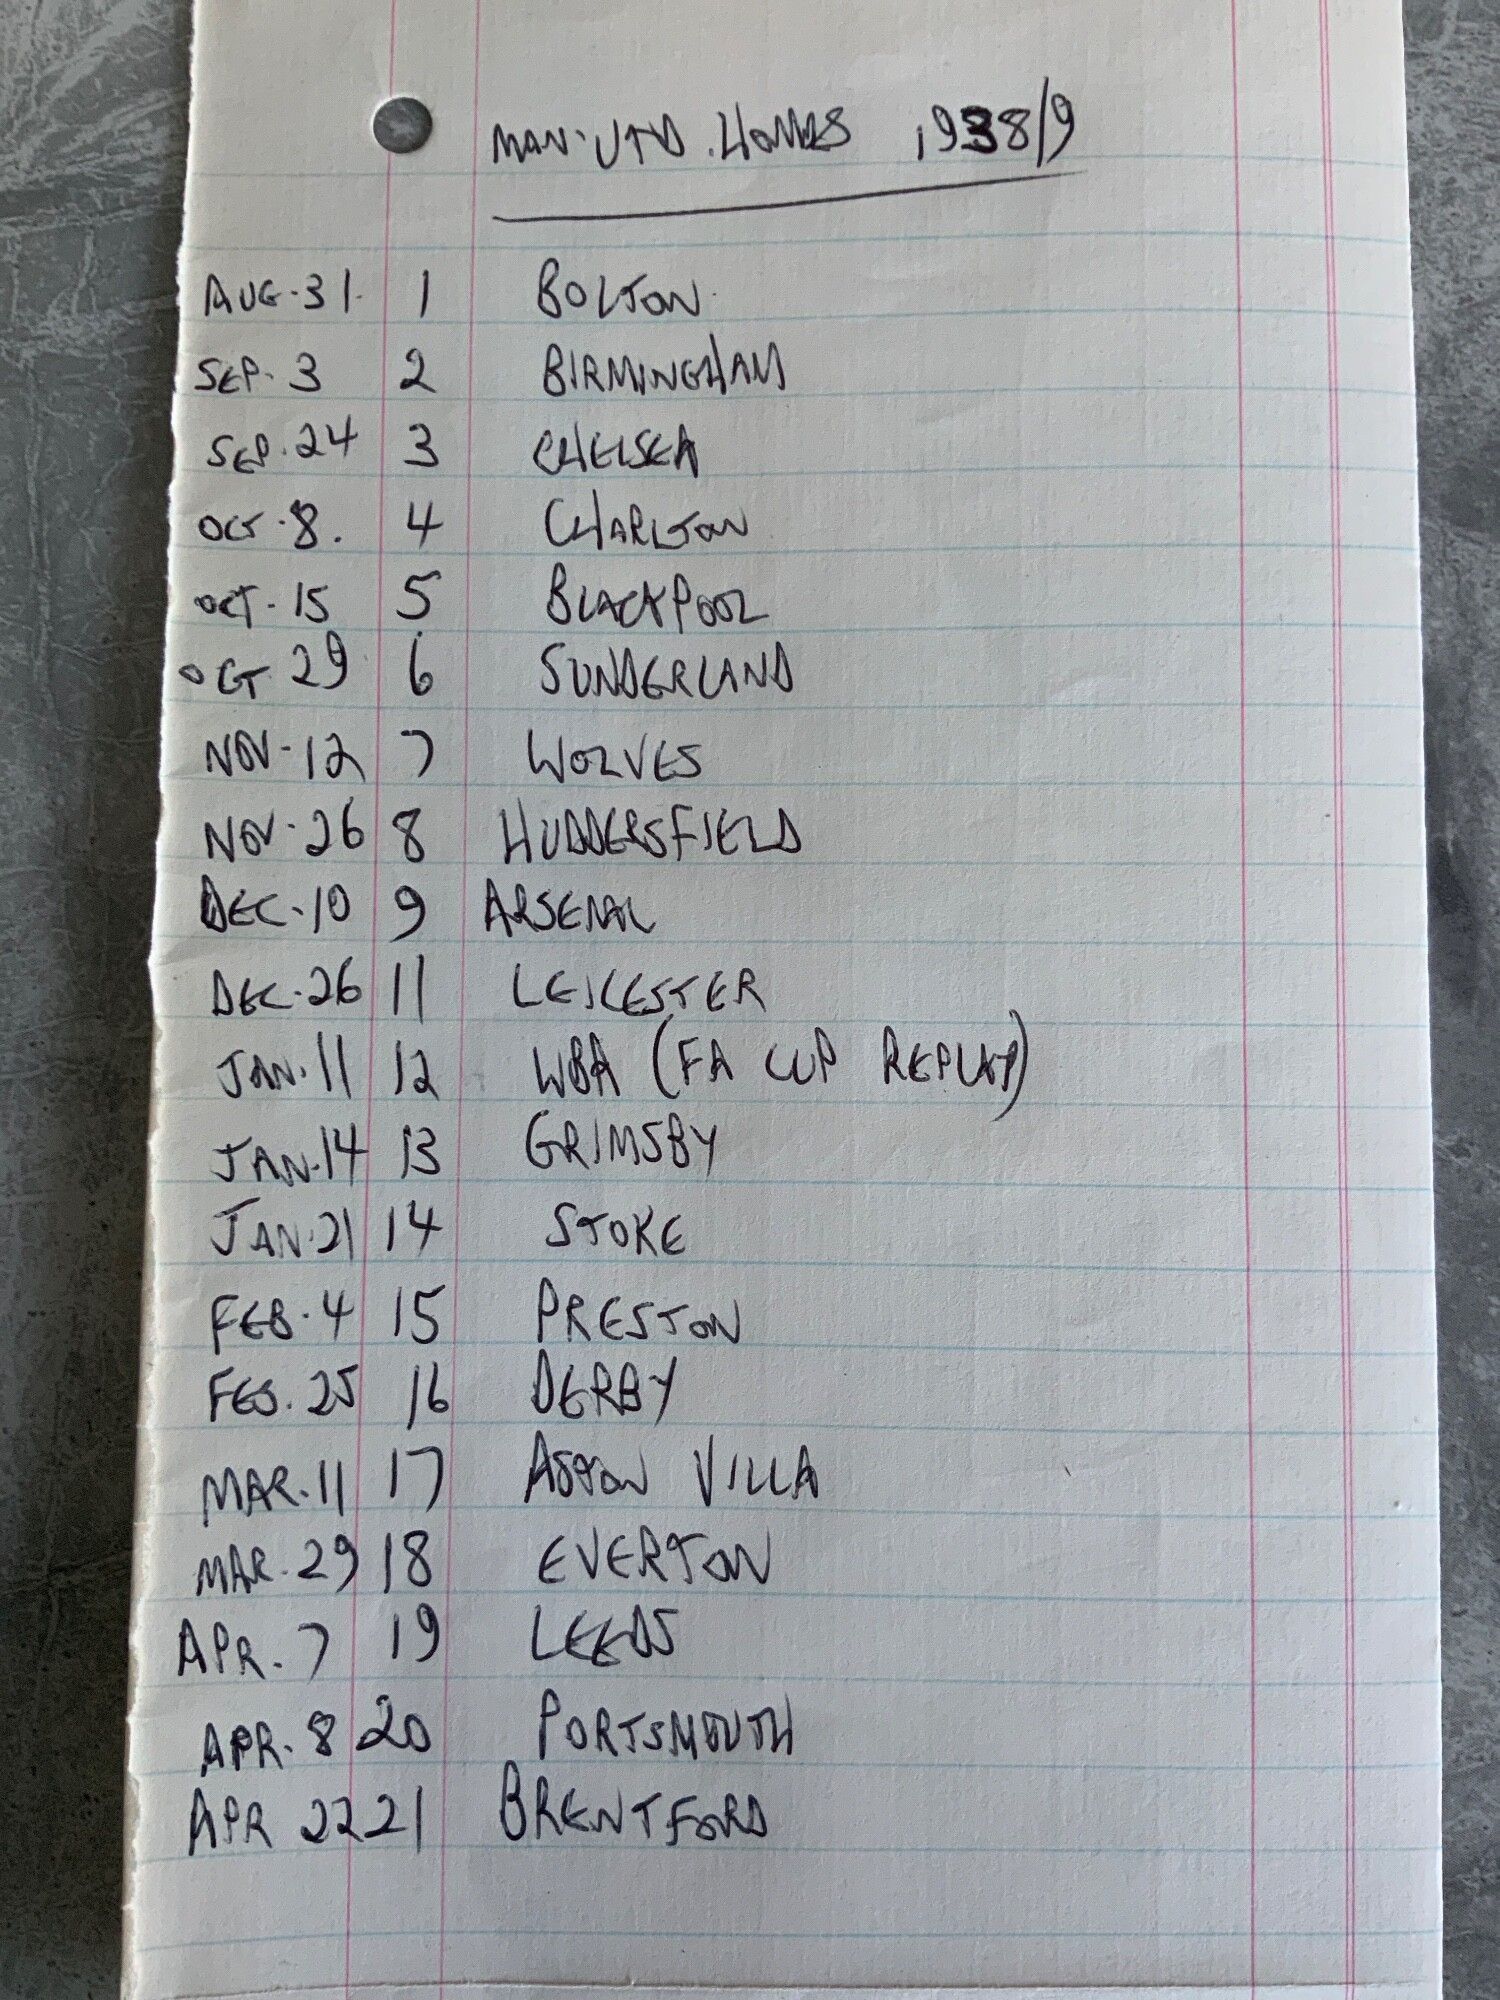 MAN. UTD. HOMES 1938/9
AUG. 31. 1 BOLTON.
SEP. 3 2 BIRMINGHAM
SEP. 24 3 CHELSEA
OCT. 8. 4 CHARLTON
OCT. 15 5 BLACKPOOL
OCT 29 6 SUNDERLAND
NOV. 12 7 WOLVES
NOV. 26 8 HUDDERSFIELD
DEC. 10 9 ARSENAL
DEC. 26 11 LEICESTER
JAN. 11 12 WBA (FA CUP REPLAY)
JAN. 14 13 GRIMSBY
JAN. 21 14 STOKE
FEB. 4 15 PRESTON
FEB. 25 16 DERBY
MAR. 11 17 ASTON VILLA
MAR. 29 18 EVERTON
APR. 7 19 LEEDS
APR. 8 20 PORTSMOUTH
APR 22 21 BRENTFORD